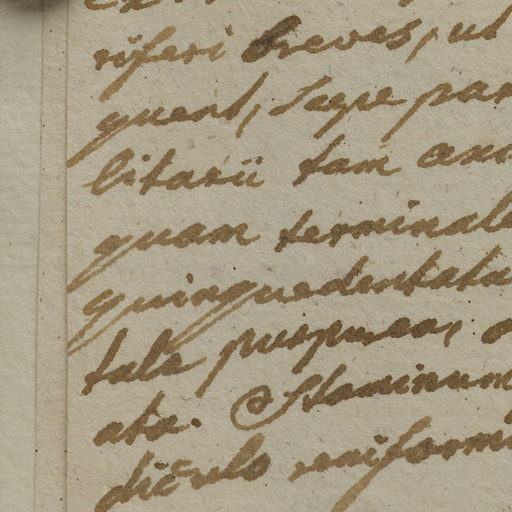 riferi breves, ut
quent, sepe par
litarii tam axi
quam terminale
quinquedentata
tale purpurea,
ata. Staminum
diculo, reniformi